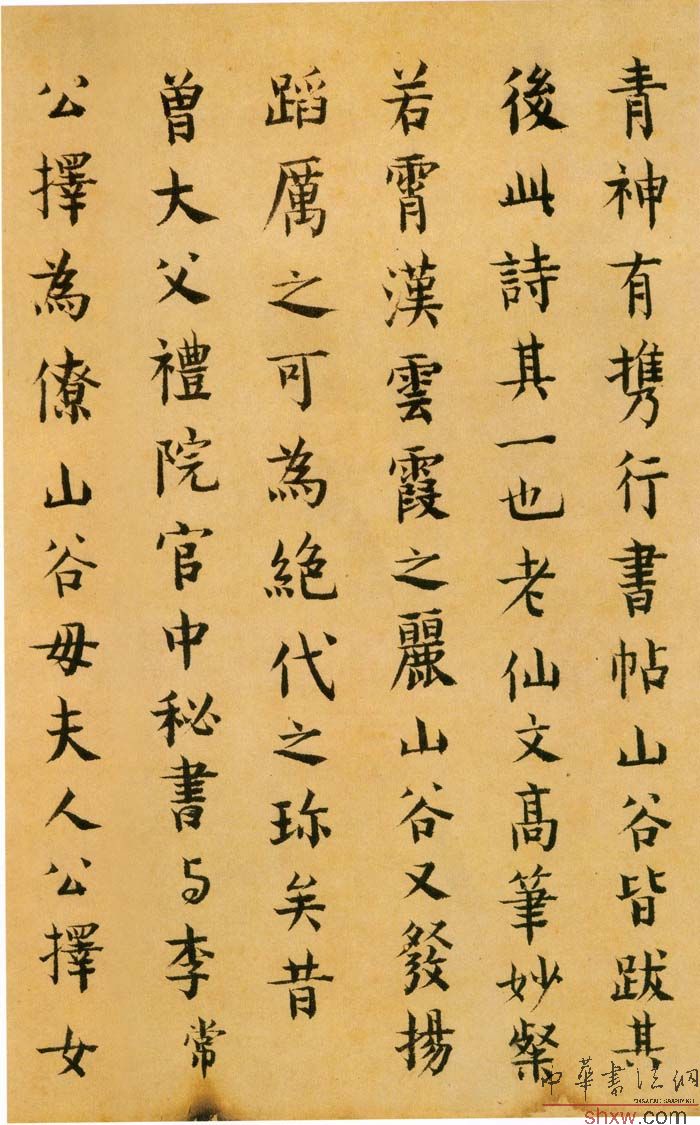 青神有携行書帖山谷皆跋其
後此詩其一也老仙文高筆妙粲
若霄漢雲霞之麗山谷又發揚
蹈厲之可為絕代之珎矣昔
曾大父禮院官中秘書与李常
公擇為僚山谷母夫人公擇女
中華書法網
shxw.com